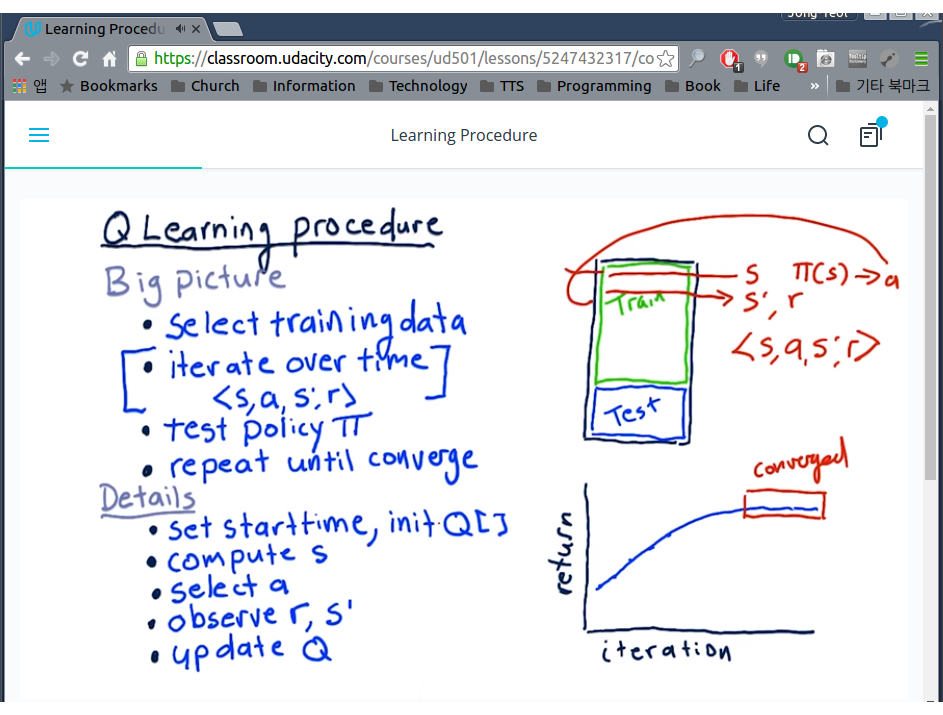 Jong Yeol
Learning Procedu
https://classroom.udacity.com/courses/ud501/lessons/5247432317/co
1
2
앱 Bookmarks Church Information Technology TTS Programming Book Life » 기타 북마크
Learning Procedure
Q Learning procedure
Big picture
• select training data
• iterate over time
<s, a, s', r>
• test policy π
• repeat until converge
Details
• set starttime, init Q[]
• compute s
• select a
• observe r, s'
• update Q
Train
Test
s π(s) → a
s', r
<s, a, s', r>
converged
return
iteration